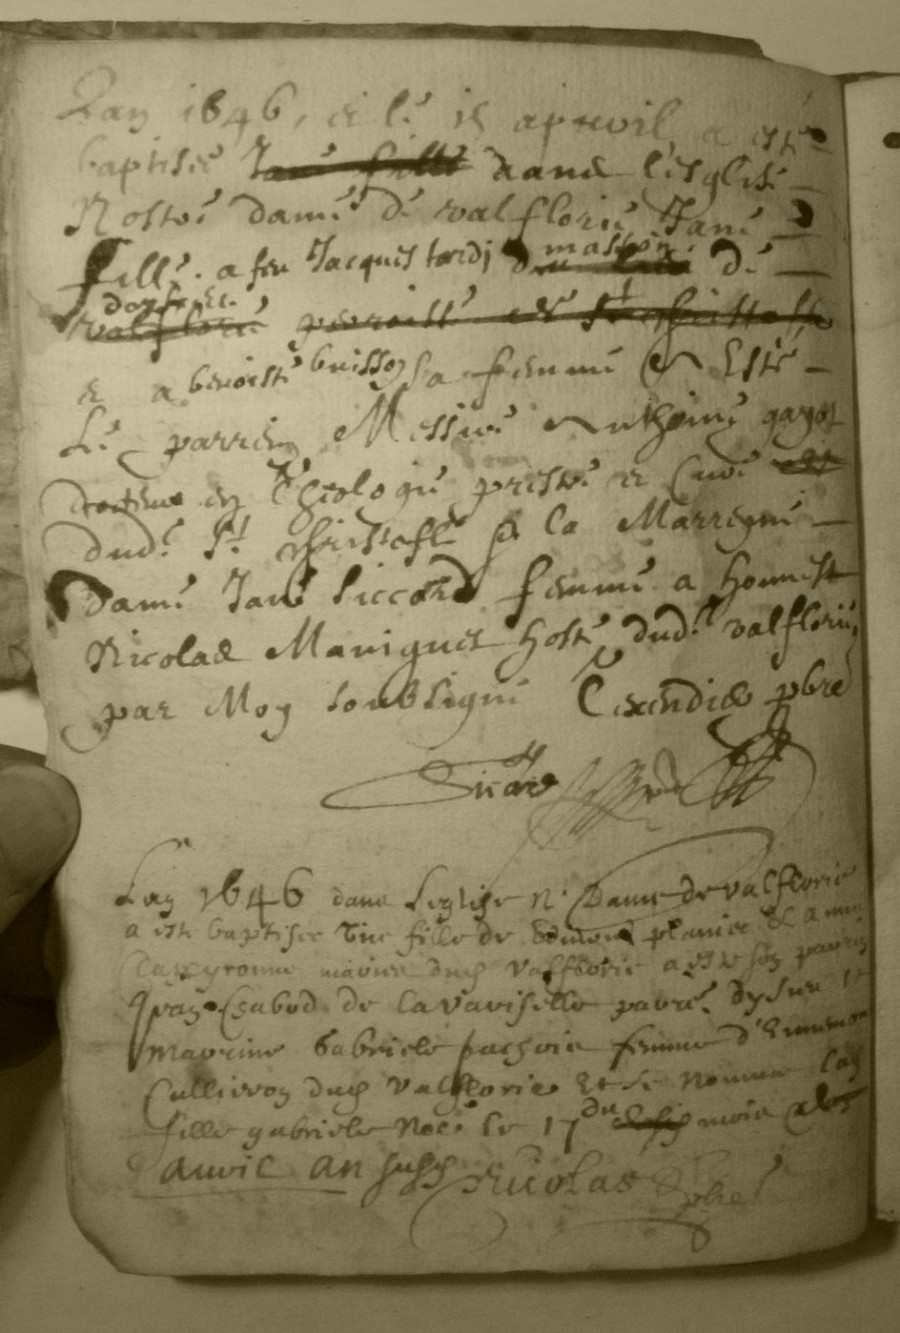 L'an 1646, et le 15 apvril a esté
baptisée Jane fille dans l'esglise
Nostre dame de valflorie Jane
fille a feu Jacques tardi masson de
valflorie parroisse de St Christofle
et a benoiste brisson sa femme A Esté
Le parrein Messire Anthoine gayot
docteur en Theologie prestre et Curé
dud. St Christofle & la Marreyne
dame Jane Siccard femme a honneste
Nicolas Maniguet hoste dud. valflorie
par Moy soubsigné pbre
Sicard
L'an 1646 dans Leglise N. Dame de valflorie
a esté baptisée une fille de Edmond planier & a mre
mariee dud valflorie a esté son parrin
Jean Chabod de la variselle parre.
marrine Gabriele pachoie femme d'Ennemon
Cullieron dud Valflorie Et se nomme lad
fille gabriele Née le 17 du mois
auvril an susd Nicolas pbre